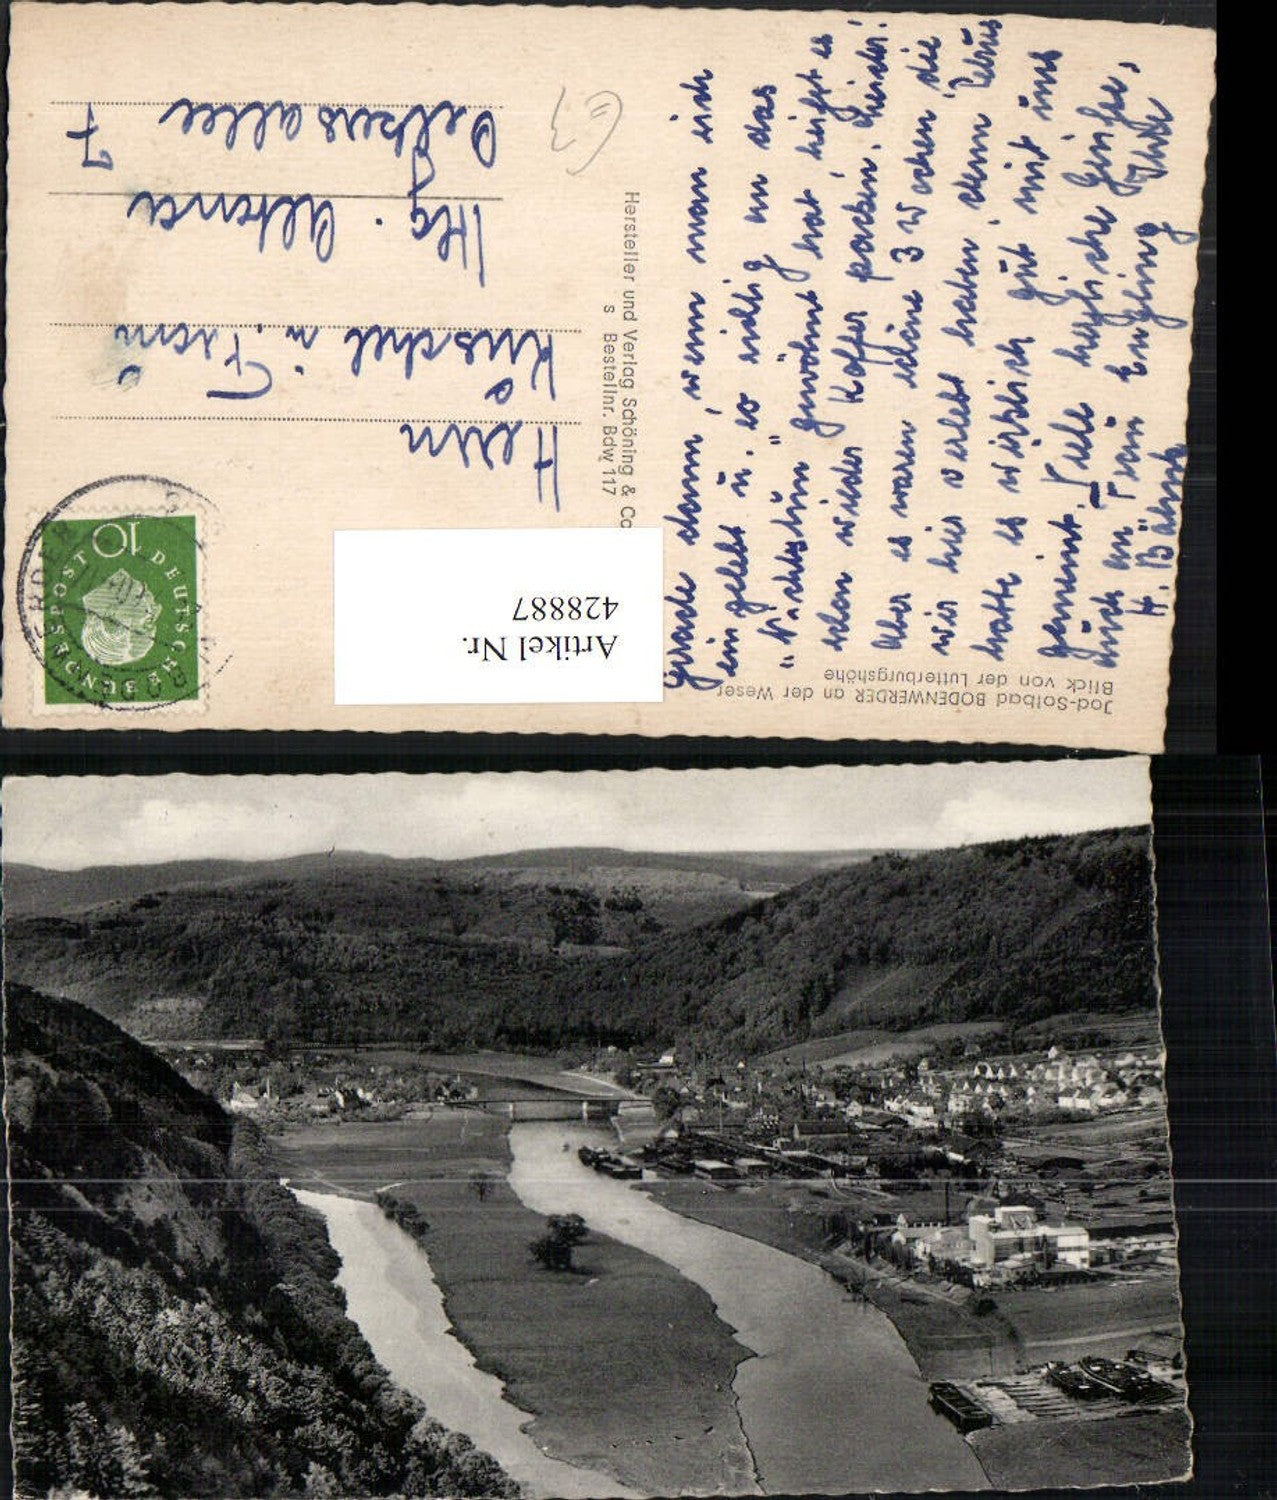 Jod-Solbad BODENWERDER an der Weser
Blick von der Lutterburgshöhe
Gerade dann, wenn man sich
eingelebt u. so richtig an das
"Nichtstun" gewöhnt hat, heißt es
schon wieder Koffer packen. Leider!
Aber es waren schöne 3 Wochen die
wir hier verlebt haben denn Petrus
hatte es wirklich gut mit uns
gemeint. Viele herzliche Grüße,
auch an Frau Engling Ihre
H. Bähnk
Hersteller und Verlag Schöning & Co
s Bestellnr. Bdw 117
DEUTSCHE BUNDESPOST
10
Herrn
Küschel u. Frau
Hbg. Altona
Oelkersallee
7
Artikel Nr.
428887